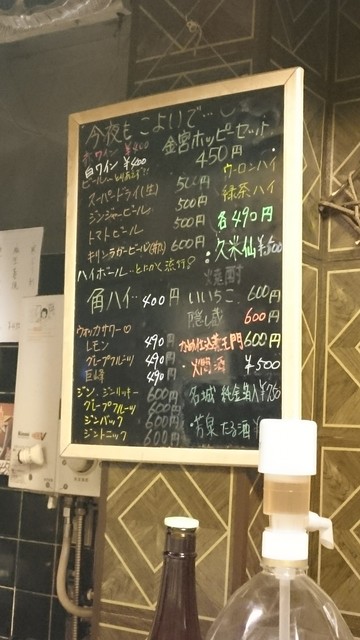 今夜もこよいで…
赤ワイン ¥400
白ワイン ¥400
ビール
スーパードライ(生) 500円
ジンジャービール 500円
トマトビール 500円
キリンラガービール 600円
ハイボール…とにかく流行!
角ハイ… 400円
ウォッカサワー♡
レモン 490円
グレープフルーツ 490円
巨峰 490円
ジン…ジンリッキー 600円
グレープフルーツ 600円
ジンバック 600円
ジントニック 600円
金宮ホッピーセット
450円
ウーロンハイ
緑茶ハイ
各490円
久米仙 ¥500
焼酎
いいちこ 600円
隠し蔵 600円
600円
・燗酒 ¥500
名城 純金箔入
たる酒